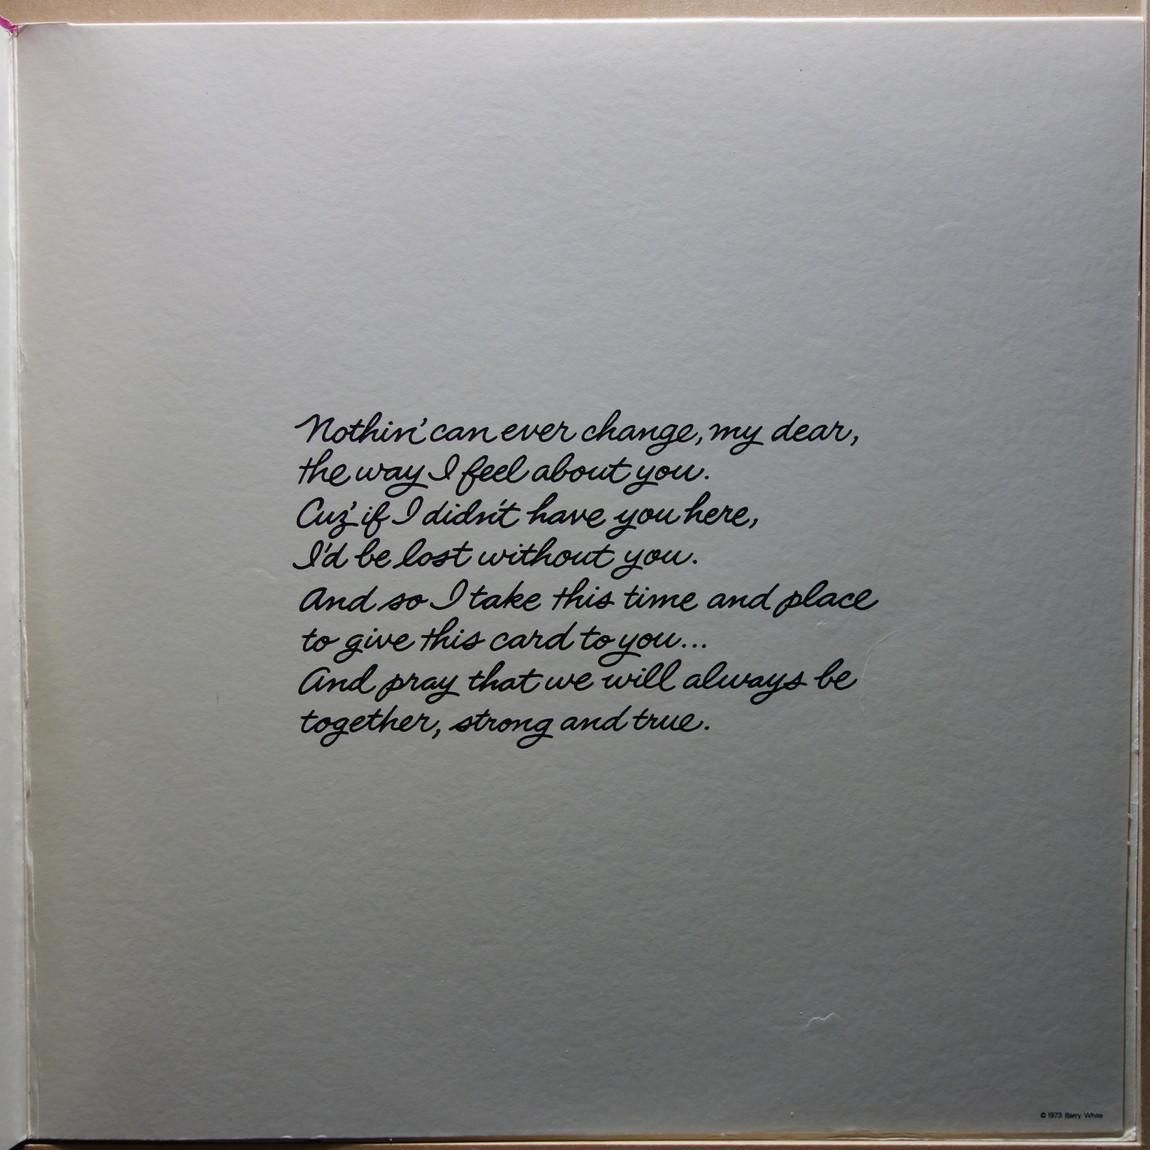 Nothin' can ever change, my dear,
the way I feel about you.
Cuz' if I didn't have you here,
I'd be lost without you.
And so I take this time and place
to give this card to you...
And pray that we will always be
together, strong and true.
© 1973 Barry White